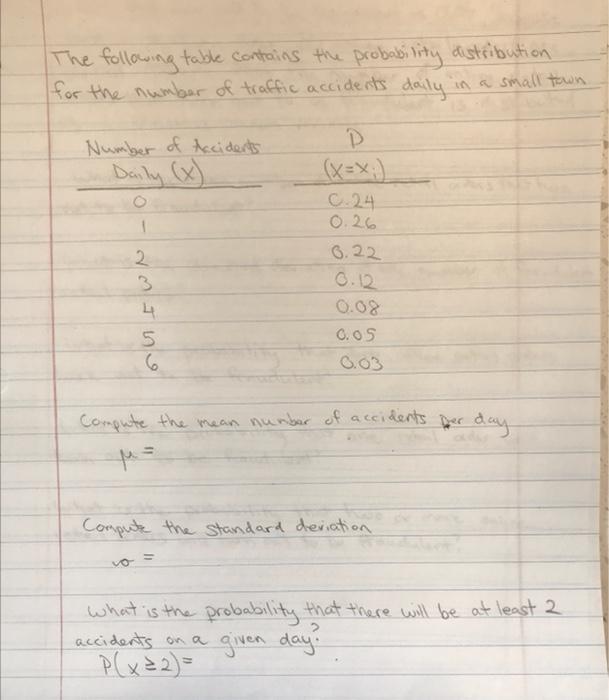 The following table contains the probability distribution
for the number of traffic accidents daily in a small town
Number of Accidents P
Daily (X) (X=Xi)
0 0.24
1 0.26
2 0.22
3 0.12
4 0.08
5 0.05
6 0.03
Compute the mean number of accidents per day
μ =
Compute the standard deviation
σ =
What is the probability that there will be at least 2
accidents on a given day?
P(x≥2)=